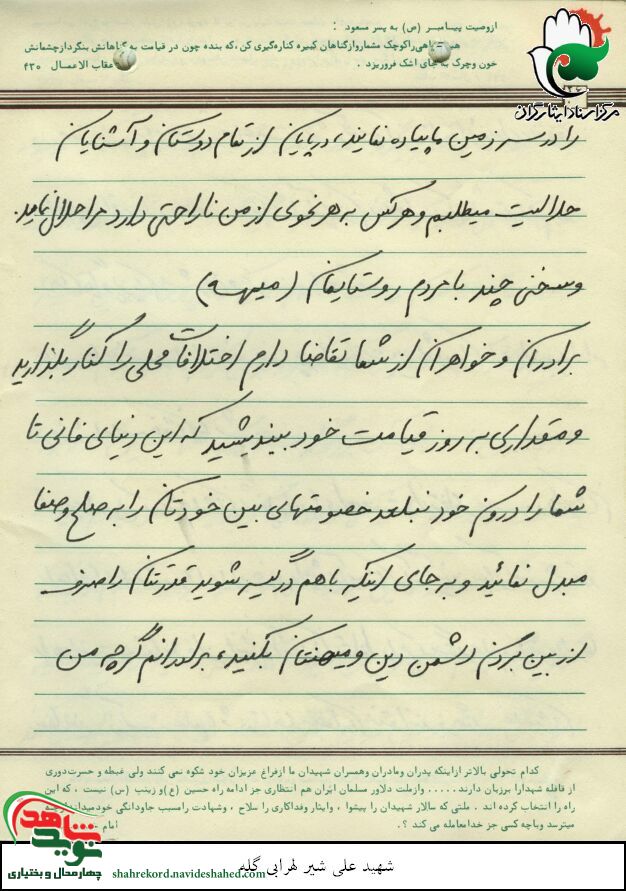 ازوصیت پیـامبـر (ص) به پسر مسعود :
گناهی راکوچک مشمار وازگناهان کبیره کناره‌گیری کن، که بنده چون در قیامت به گناهانش بنگرد ازچشمانش
خون وچرک به جای اشک فروریزد . عقاب الاعمال ۴۳۰
مرکز اسناد ایثارگران
را در سرزمین ما پیاده نمایند، در پایان از تمام دوستان و آشنایان
حلالیت میطلبم و هر کس به هر نحوی از من ناراحتی دارد مرا حلال نماید.
و سخنی چند با مردم روستایمان (میهه)
برادران و خواهران از شما تقاضا دارم اختلافات محلی را کنار بگذارید
و مقداری به روز قیامت خود بیندیشید که این دنیای فانی تا
شما را درون خود نبلعد خصومتهای بین خودتان را به صلح و صفا
مبدل نمائید و به جای اینکه با هم درگیر شوید قدرتتان را صرف
از بین بردن دشمن دین و میهنتان بکنید، برادرانم گرچه من
کدام تحولی بالاتر ازاینکه پدران ومادران وهمسران شهیدان ما ازفراغ عزیزان خود شکوه نمی کنند ولی غبطه و حسرت‌دوری
از قافله شهدارا برزبان دارند..... وازملت دلاور مسلمان ایران هم انتظاری جز ادامه راه حسین (ع) و زینب (س) نیست ، که این
راه را انتخاب کرده اند . ملتی که سالار شهیدان را پیشوا ، وایثار وفداکاری را سلاح ، وشهادت راسبب جاودانگی خودمیداند
میترسد وباچه کسی جز خدامعامله می کند ؟. امام
نوید شاهد
چهارمحال و بختیاری
shahrekord.navideshahed.com
شهید علی شیر لهرابی گله